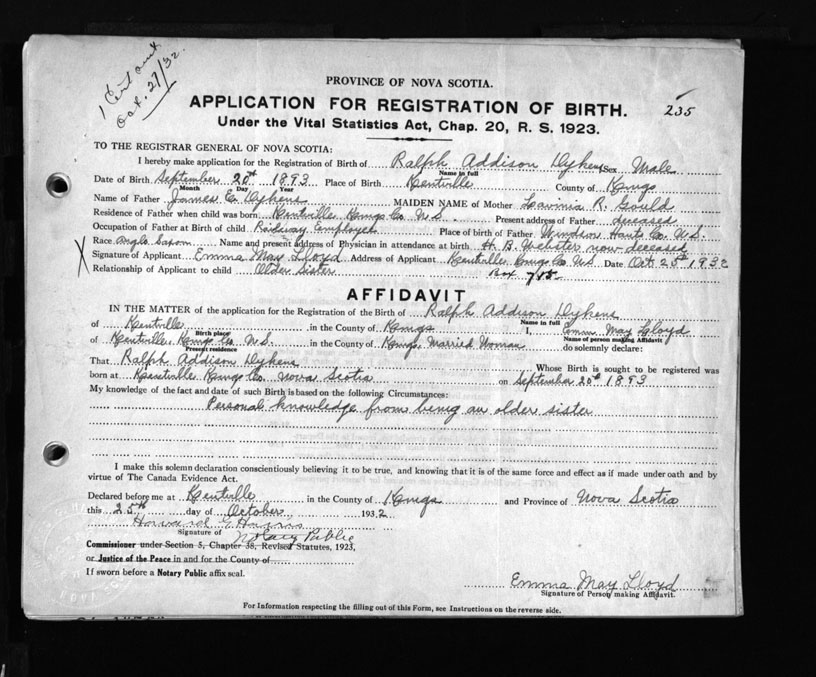 1 Cert out
Oct. 27/32.
PROVINCE OF NOVA SCOTIA.
APPLICATION FOR REGISTRATION OF BIRTH.
235
Under the Vital Statistics Act, Chap. 20, R. S. 1923.
TO THE REGISTRAR GENERAL OF NOVA SCOTIA:
I hereby make application for the Registration of Birth of Ralph Addison Dykens Sex Male
Name in full
Date of Birth September 20th 1893 Place of Birth Kentville County of Kings
Month Day Year
Name of Father James E. Dykens MAIDEN NAME of Mother Lavinia R. Gould
Residence of Father when child was born Kentville Kings Co. N.S. Present address of Father deceased
Occupation of Father at Birth of child Railway Employee Place of birth of Father Windsor Hants Co. N.S.
Race Anglo Saxon Name and present address of Physician in attendance at birth H. B. Webster now deceased
X Signature of Applicant Emma May Lloyd Address of Applicant Kentville Kings Co N.S Date Oct 25th 1932
Relationship of Applicant to child Older Sister Box 715
AFFIDAVIT
IN THE MATTER of the application for the Registration of the Birth of Ralph Addison Dykens
Name in full
of Kentville in the County of Kings I, Emma May Lloyd
Birth place Name of person making Affidavit
of Kentville Kings Co. N.S. in the County of Kings, Married Woman do solemnly declare:
Present residence
That Ralph Addison Dykens Whose Birth is sought to be registered was
born at Kentville Kings Co. Nova Scotia on September 20th 1893
My knowledge of the fact and date of such Birth is based on the following Circumstances:
Personal knowledge from being an older sister
I make this solemn declaration conscientiously believing it to be true, and knowing that it is of the same force and effect as if made under oath and by
virtue of The Canada Evidence Act.
Declared before me at Kentville in the County of Kings and Province of Nova Scotia
this 25th day of October 1932
Howard G Harris
Signature of Notary Public
Commissioner under Section 5, Chapter 38, Revised Statutes, 1923,
or Justice of the Peace in and for the County of
If sworn before a Notary Public affix seal.
Emma May Lloyd
Signature of Person making Affidavit.
For Information respecting the filling out of this Form, see Instructions on the reverse side.